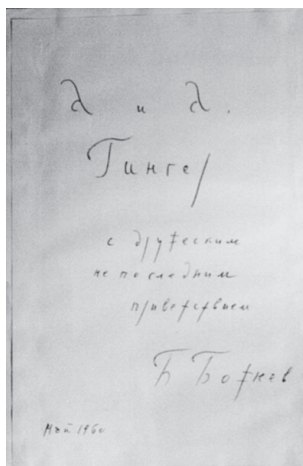 А и А.
Гингер
с дружеским
не последним
приветствием
Б Божнев
Май 1960